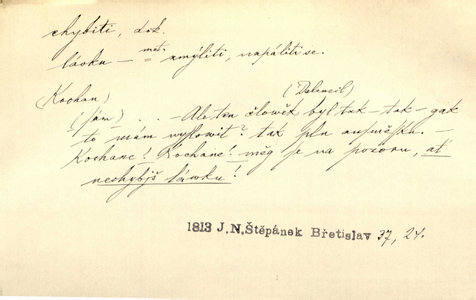 chybiti, dok.
lávku — = met. zmýliti, napáliti se.
(Kochan) (Dalemil)
(sám) . . — Ale ten člowěk byl tak — tak — gak
to mám wyslowit? tak pln ausměšku. —
Kochane! Kochane! měg se na pozoru, ať
nechybjš láwku!
1813 J.N.Štěpánek Břetislav 37, 24.